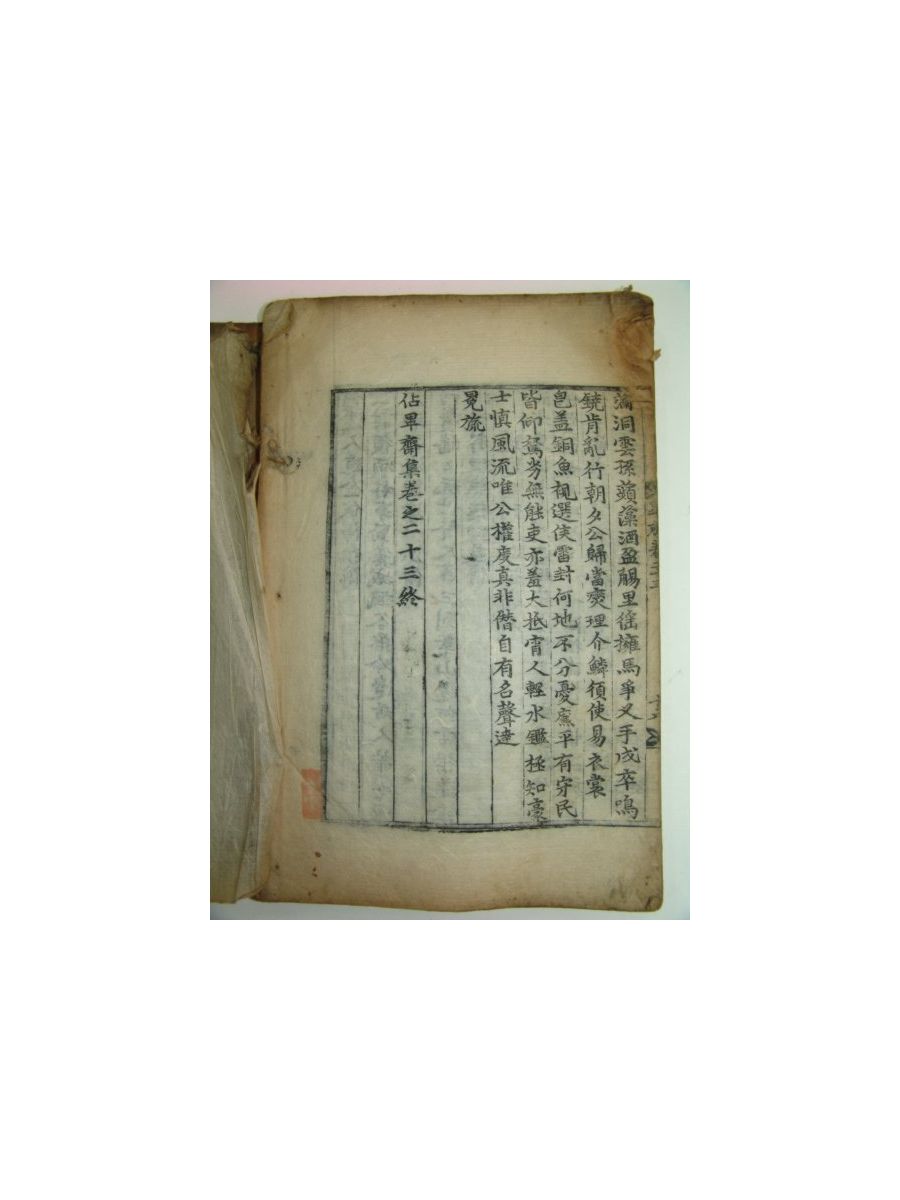 洞雲孫蘋藻酒盈觴里傜擁馬爭叉手戍卒鳴
鐃肯亂行朝夕公歸當燮理介鱗須使易衣裳
皂盖銅魚視選侯雷封何地不分憂廉平有守民
皆仰駑劣無能吏亦羞大抵宵人輕水鑑極知豪
士慎風流唯公權度真非僭自有名聲達
冕旒
佔畢齋集卷之二十三終